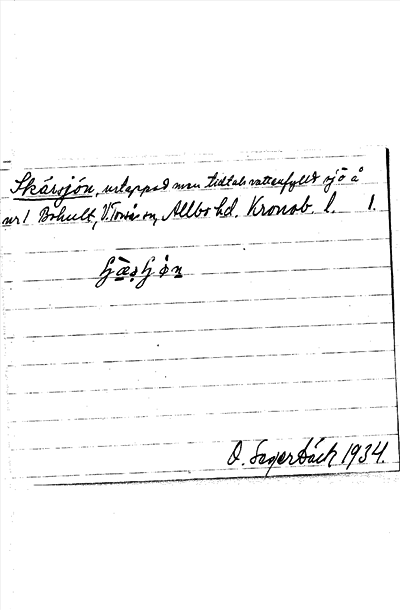 Skärsjön, urtappad men tidtals vattenfylld sjö å
nr 1 Bohult, V. Torsås sn, Allbo hd. Kronob. l. 1.
O. Sagerbäck 1934.